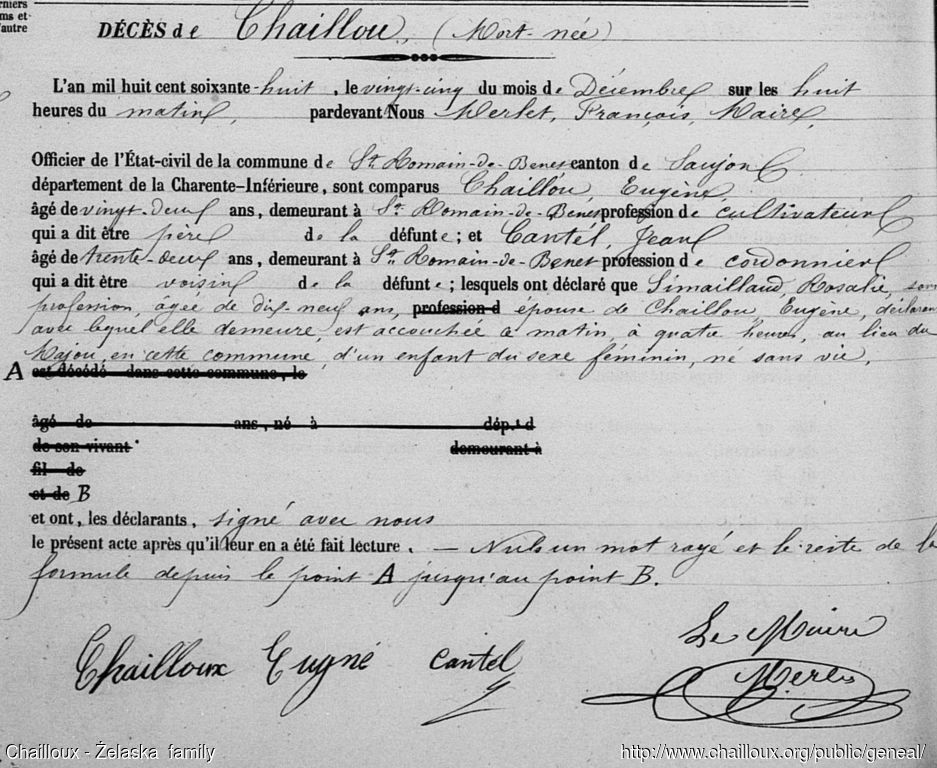 rniers
ms et
l'autre
DÉCÈS de Chaillou, (Mort-née)
L'an mil huit cent soixante-huit, le vingt-cinq du mois de Décembre sur les huit
heures du matin, pardevant Nous Merlet, François, Maire,
Officier de l'État-civil de la commune de St Romain-de-Benet canton de Saujon
département de la Charente-Inférieure, sont comparus Chaillou, Eugène,
âgé de vingt-deux ans, demeurant à St Romain-de-Benet profession de cultivateur
qui a dit être père de la défunte; et Cantel, Jean
âgé de trente-deux ans, demeurant à St Romain-de-Benet profession de cordonnier
qui a dit être voisin de la défunte; lesquels ont déclaré que Simailland, Rosalie, sans
profession, âgée de dix-neuf ans, profession d épouse de Chaillou, Eugène, déclarant
avec lequel elle demeure, est accouchée ce matin, à quatre heures, au lieu du
Majou, en cette commune, d'un enfant du sexe féminin, né sans vie,
A est décédé dans cette commune, le
âgé de ans, né à dép.t d
de son vivant demeurant à
fil de
et de B
et ont, les déclarants, signé avec nous
le présent acte après qu'il leur en a été fait lecture. — Nuls un mot rayé et le reste de la
formule depuis le point A jusqu'au point B.
Le Maire
Chailloux Eugné Cantel
Merlet
Chailloux - Želaska family http://www.chailloux.org/public/geneal/